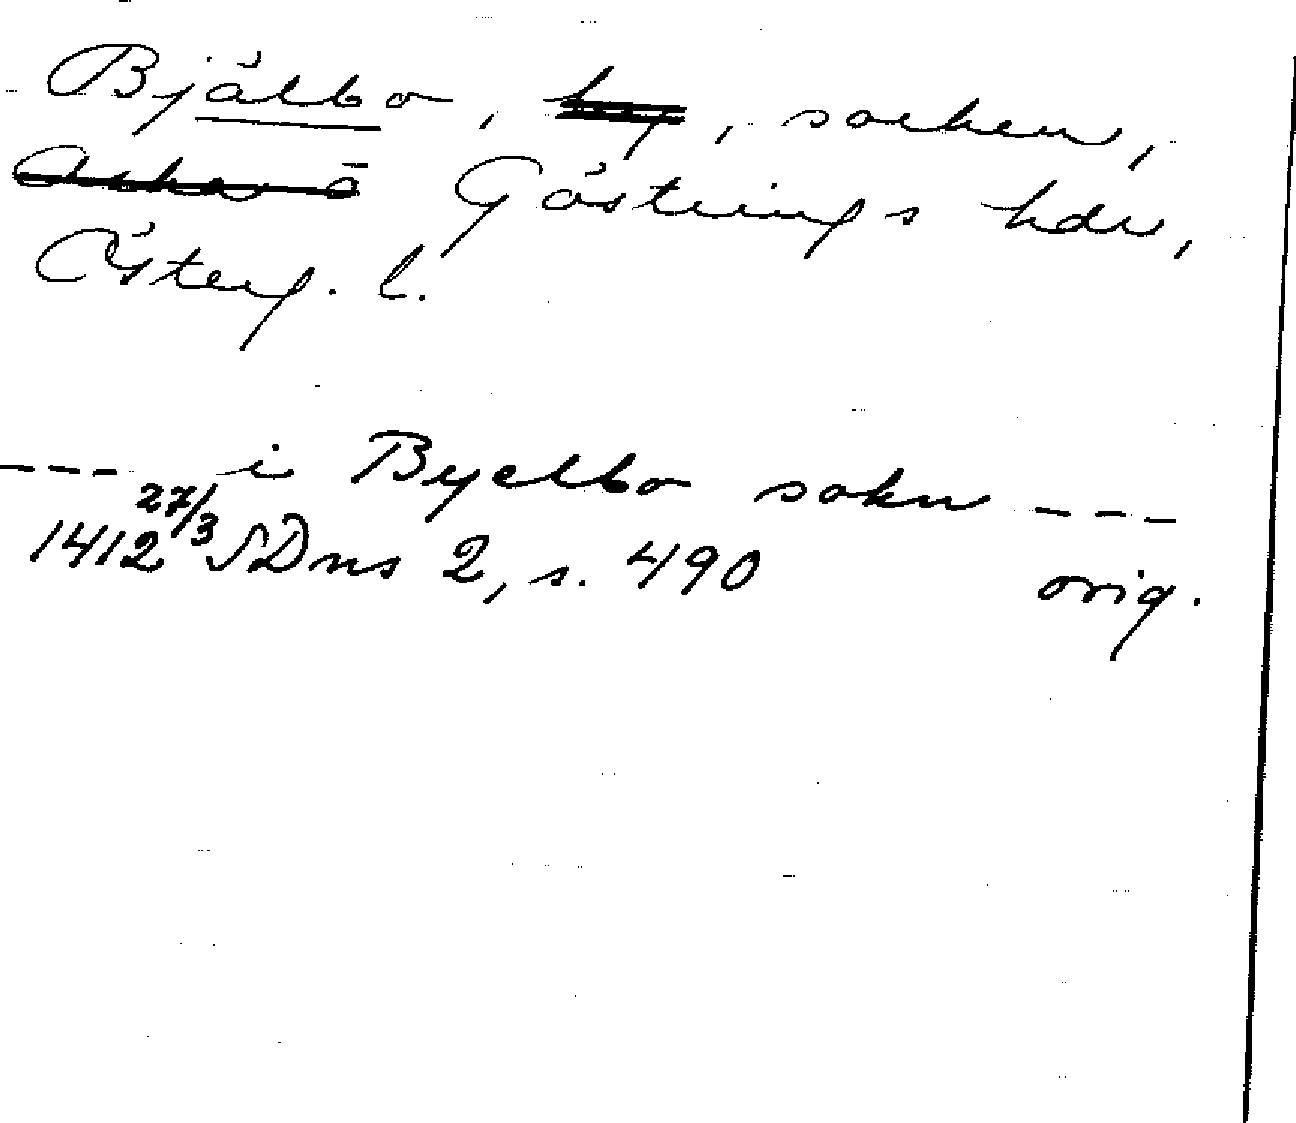 Bjälbo, by, socken,
Aska o Göstrings hdr,
Österg. l.
---- i Byelbo sokn ---
1412 27/3 SDns 2, s. 490 orig.